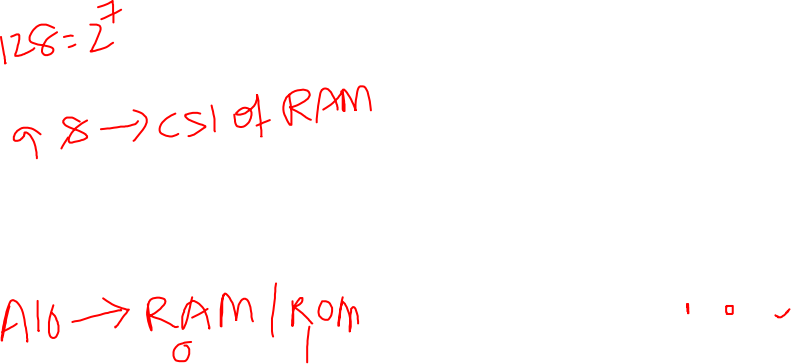 128=2^7
9 8→CS1 of RAM
A10→RAM/ROM
0 1